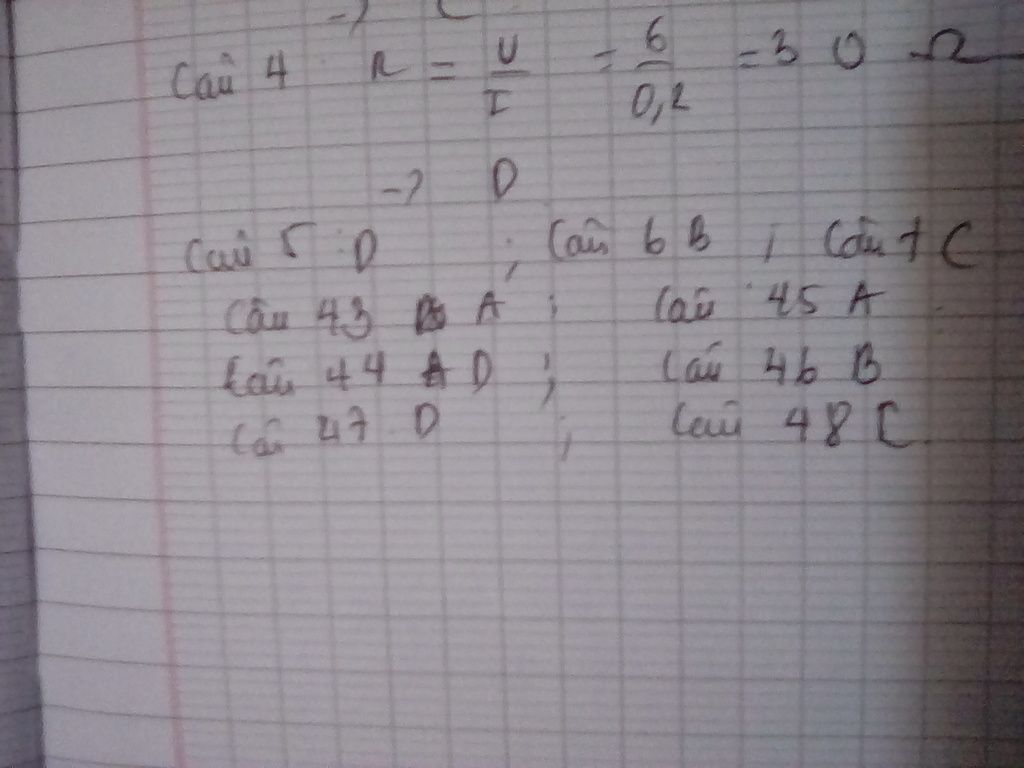 ->
Câu 4 R = U/I = 6/0,2 = 30 Ω
-> D
Câu 5 : D ; Câu 6 B ; Câu 7 C
Câu 43 A ; Câu 45 A
Câu 44 D ; Câu 46 B
Câu 47 D ; Câu 48 C